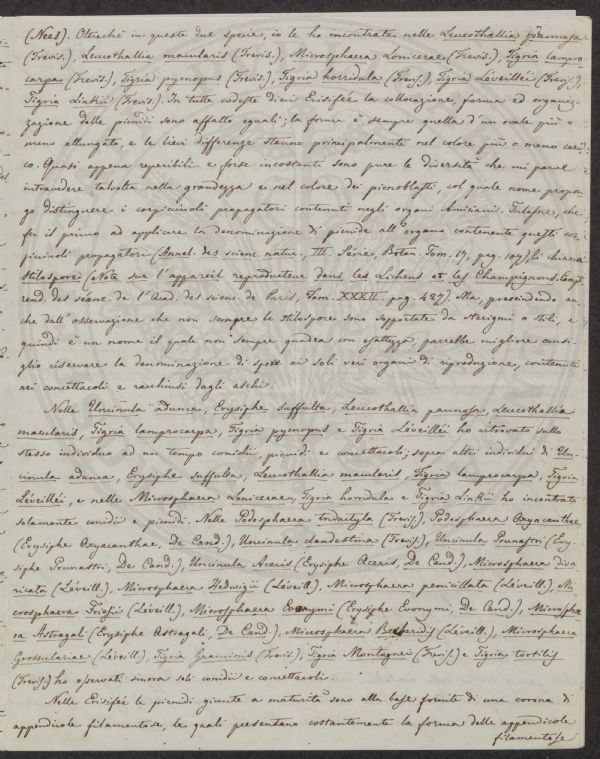 (Nees). Oltreché in queste due specie, io le ho incontrate nelle Leucothallia pannosa
(Trevis.), Leucothallia macularis (Trevis.), Microsphaera Lonicerae (Trevis.), Tigria lampro
carpa (Trevis.), Tigria pycnopus (Trevis.), Tigria horridula (Trevis.), Tigria Léveilléi (Trevis.),
Tigria Linkii (Trevis.). In tutte codeste dieci Erisifée la collocazione, forma ed organiz-
zazione delle picnidi sono affatto eguali; la forma è sempre quella d'un ovale più o
meno allungato, e le lievi differenze stanno principalmente nel colore più o meno cari-
co. Quasi appena reperibili e forse incostanti sono pure le diversità che mi parve
intravedere talvolta nella grandezza e nel colore dei picnoblasti, col quale nome propon-
go distinguere i corpicciuoli propagatori contenuti negli organi Amiciani. Tulasne, che
fu il primo ad applicare la denominazione di picnide all'organo contenente questi cor-
picciuoli propagatori (Annal. des scienc. natur., III. Série, Botan. Tom. 17, pag. 107), li chiama
stilospore (Note sur l'appareil reproducteur dans les Lichens et les Champignons. Compt.
rend. des séanc. de l'Acad. des scienc. de Paris, Tom. XXXII. pag. 427). Ma, prescindendo an-
che dall'osservazione che non sempre le stilospore sono supportate da sterigmi o stili, e
quindi è un nome il quale non sempre quadra con esattezza, parrebbe migliore consi-
glio riservare la denominazione di spore ai soli veri organi di riproduzione, contenuti
nei concettacoli e racchiusi dagli aschi.
Nelle Uncinula adunca, Erysiphe suffulta, Leucothallia pannosa, Leucothallia
macularis, Tigria lamprocarpa, Tigria pycnopus e Tigria Léveilléi ho ritrovato sullo
stesso individuo ad un tempo conidii, picnidi e concettacoli; sopra altri individui di Un-
cinula adunca, Erysiphe suffulta, Leucothallia macularis, Tigria lamprocarpa, Tigria
Léveilléi, e nelle Microsphaera Lonicerae, Tigria horridula e Tigria Linkii ho incontrato
solamente conidii e picnidi. Nelle Podosphaera tridactyla (Trevis.), Podosphaera Oxyacanthae
(Erysiphe Oxyacanthae, De Cand.), Uncinula clandestina (Trevis.), Uncinula Prunastri (Ery-
siphe Prunastri, De Cand.), Uncinula Aceris (Erysiphe Aceris, De Cand.), Microsphaera diva
ricata (Léveill.), Microsphaera Hedwigii (Léveill.), Microsphaera penicillata (Léveill.), Mi-
crosphaera Friesii (Léveill.), Microsphaera Evonymi (Erysiphe Evonymi, De Cand.), Microsphae
ra Astragali (Erysiphe Astragali, De Cand.), Microsphaera Berberidis (Léveill.), Microsphaera
Grossulariae (Léveill.), Tigria Graminis (Trevis.), Tigria Montagnei (Trevis.) e Tigria tortilis
(Trevis.) ho osservati sinora soli conidii e concettacoli.
Nelle Erisifée le picnidi giunte a maturità sono alla base fornite di una corona di
appendicole filamentose, le quali presentano costantemente la forma delle appendicole
filamentose